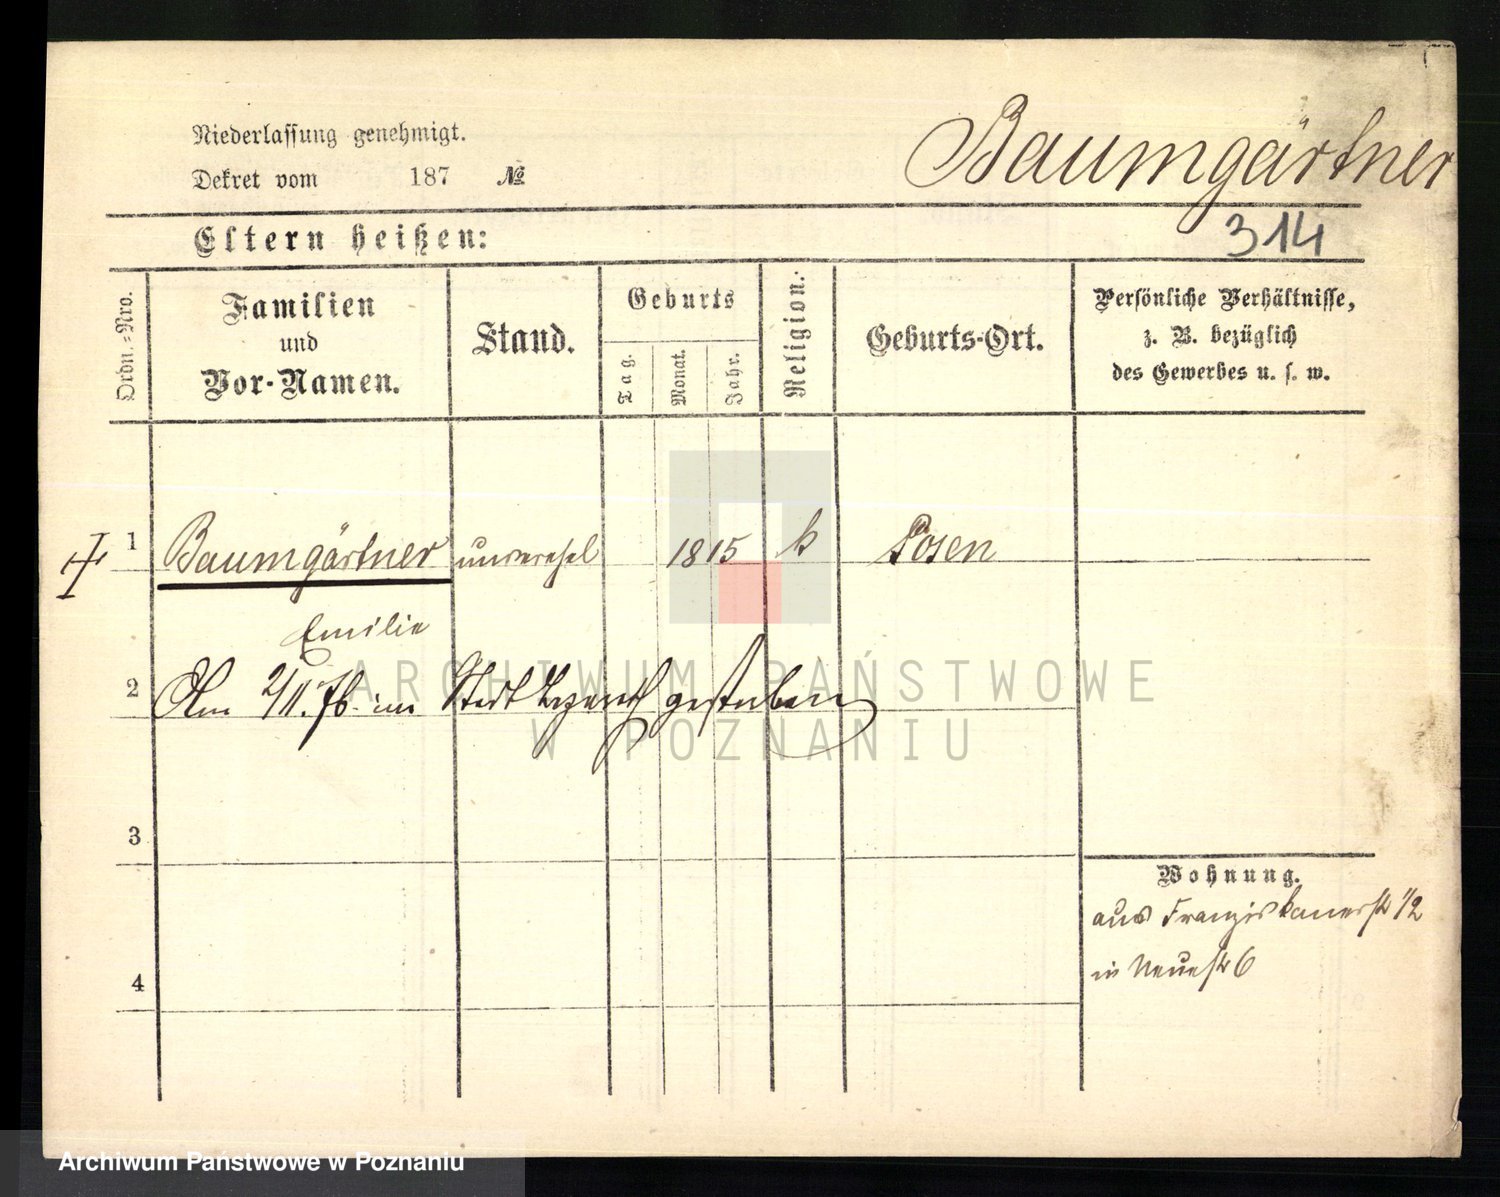 Baumgärtner
Niederlassung genehmigt.
Dekret vom 187 №
314
Eltern heißen:
Ordn.=Nro.
Familien
und
Vor-Namen.
Stand.
Geburts
Tag.
Monat.
Jahr.
Religion.
Geburts-Ort.
Persönliche Verhältnisse,
z. B. bezüglich
des Gewerbes u. s. w.
1 Baumgärtner unverehel 1815 k Posen
Emilie
2 Am 2/11. 76. im Stadt Lazareth gestorben
ARCHIWUM PAŃSTWOWE
W POZNANIU
3
Wohnung.
aus Franziskanerstr 1/2
4
in Neuestr 6
Archiwum Państwowe w Poznaniu